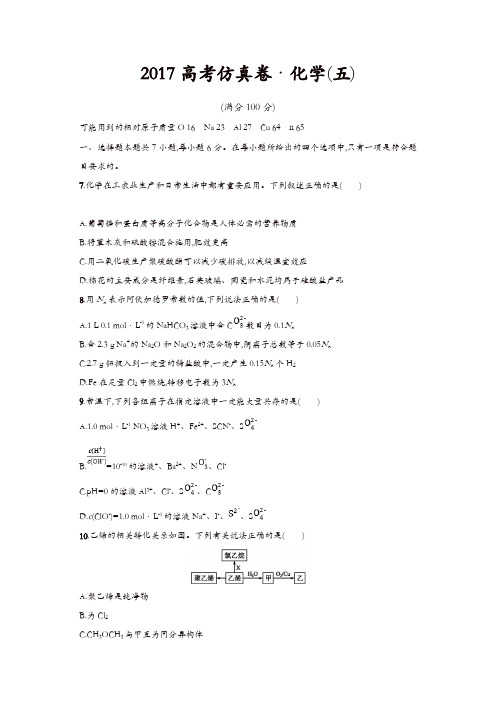 2017高考仿真卷·化学(五)
(满分100分)
可能用到的相对原子质量O 16 Na 23 Al 27 Cu 64 n 65
一、选择题本题共7小题,每小题6分。在每小题所给出的四个选项中,只有一项是符合题
目要求的。
7.化学在工农业生产和日常生活中都有重要应用。下列叙述正确的是( )
A.葡萄糖和蛋白质等高分子化合物是人体必需的营养物质
B.将草木灰和硫酸铵混合施用,肥效更高
C.用二氧化碳生产聚碳酸酯可以减少碳排放,以减缓温室效应
D.棉花的主要成分是纤维素,石英玻璃、陶瓷和水泥均属于硅酸盐产品
8.用Nₐ表示阿伏加德罗常数的值,下列说法正确的是( )
A.1 L 0.1 mol·L⁻¹的NaHCO₃溶液中含C O₃²⁻数目为0.1Nₐ
B.含2.3 g Na⁺的Na₂O和Na₂O₂的混合物中,阴离子总数等于0.05Nₐ
C.2.7 g铝投入到一定量的稀盐酸中,一定产生0.15Nₐ个H₂
D.Fe在足量Cl₂中燃烧,转移电子数为3Nₐ
9.常温下,下列各组离子在指定溶液中一定能大量共存的是( )
A.1.0 mol·L⁻¹ NO₃溶液H⁺、Fe²⁺、SCN⁻、S O₄²⁻
B.c(H⁺)/c(OH⁻)=10⁻¹⁰的溶液⁺、Ba²⁺、N O₃⁻、Cl⁻
C.pH=0的溶液Al³⁺、Cl⁻、S O₄²⁻、C O₃²⁻
D.c(ClO⁻)=1.0 mol·L⁻¹的溶液Na⁺、I⁻、S²⁻、S O₄²⁻
10.乙烯的相关转化关系如图。下列有关说法正确的是( )
氯乙烷
X
聚乙烯 乙烯 H₂O 甲 O₂/Cu 乙
A.聚乙烯是纯净物
B.为Cl₂
C.CH₃OCH₃与甲互为同分异构体